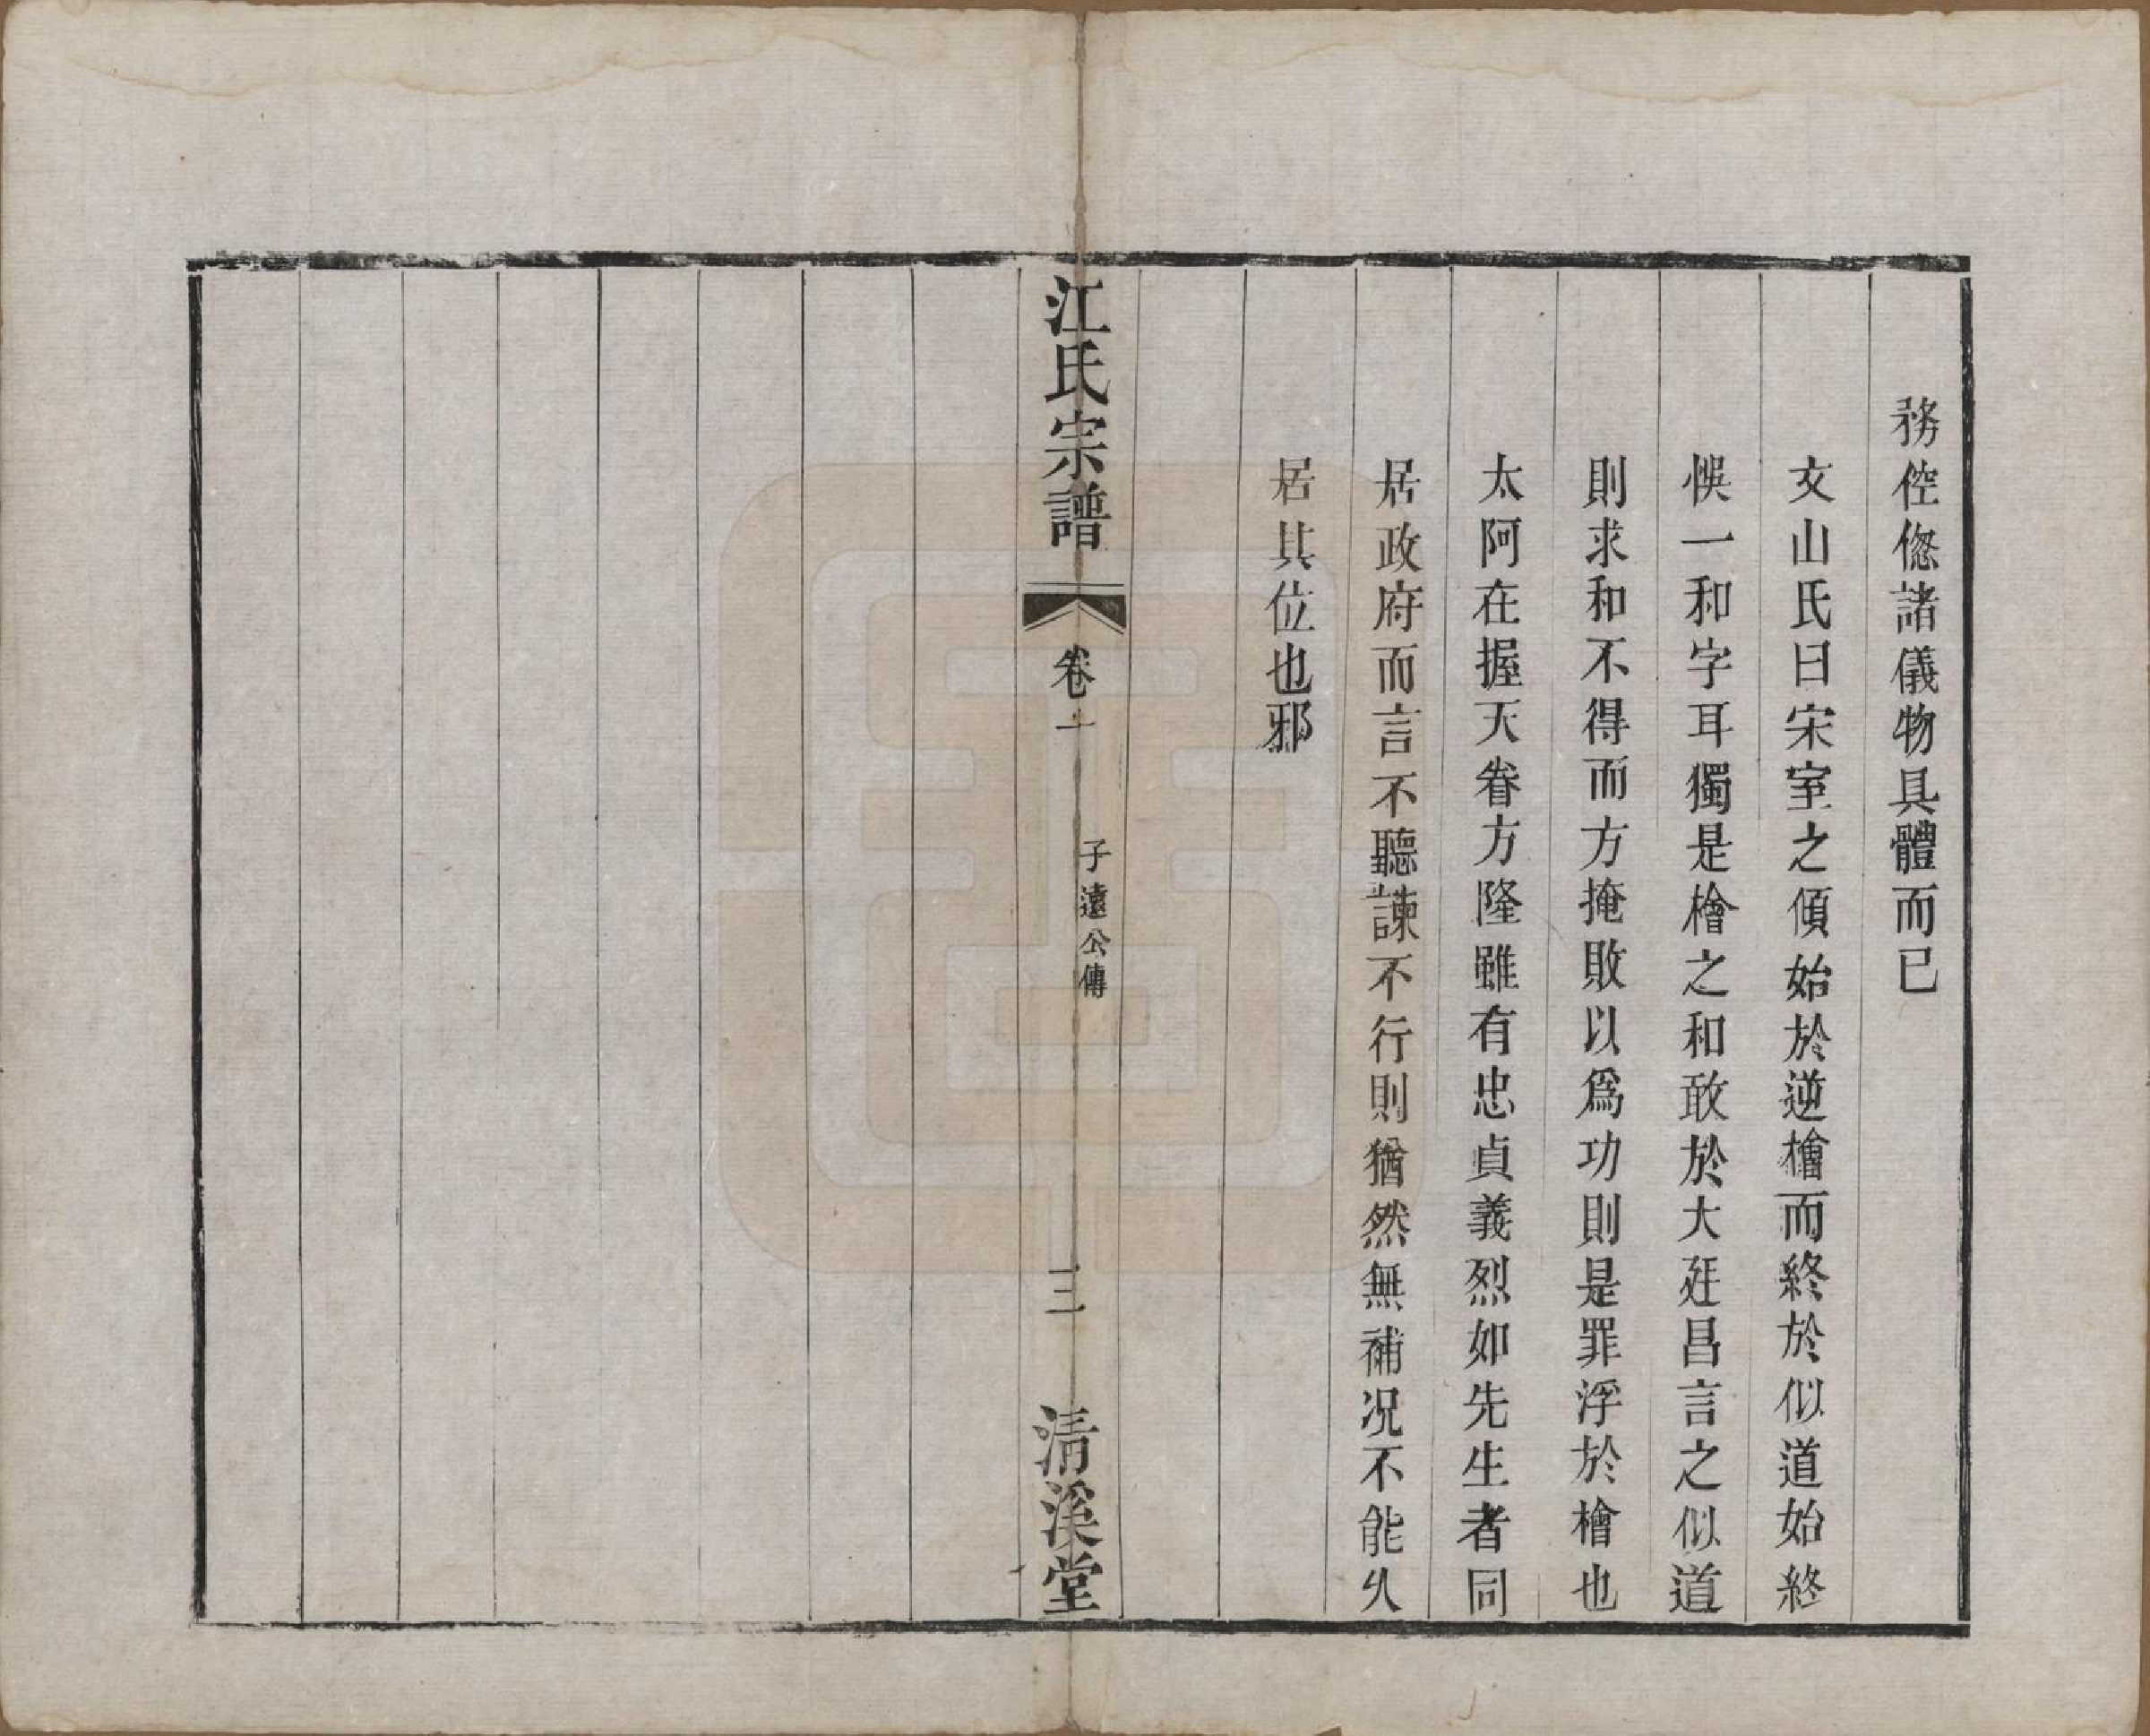 務倥偬諸儀物具體而已
文山氏曰宋室之傾始於逆檜而終於似道始終
悞一和字耳獨是檜之和敢於大廷昌言之似道
則求和不得而方掩敗以爲功則是罪浮於檜也
太阿在握天眷方隆雖有忠貞義烈如先生者同
居政府而言不聽諫不行則猶然無補况不能乆
居其位也邪
江氏宗譜
卷十
子遠公傳
三
清溪堂